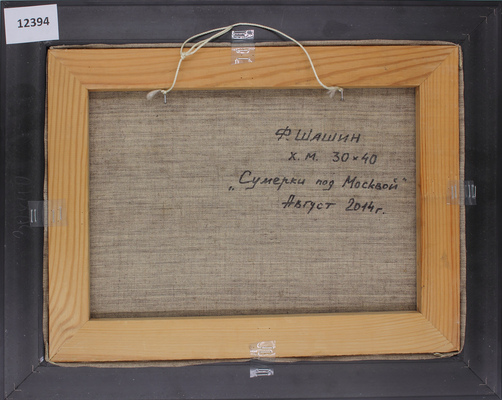 12394
Ф. ШАШИН
х. м. 30×40
„Сумерки под Москвой"
Август 2014г.